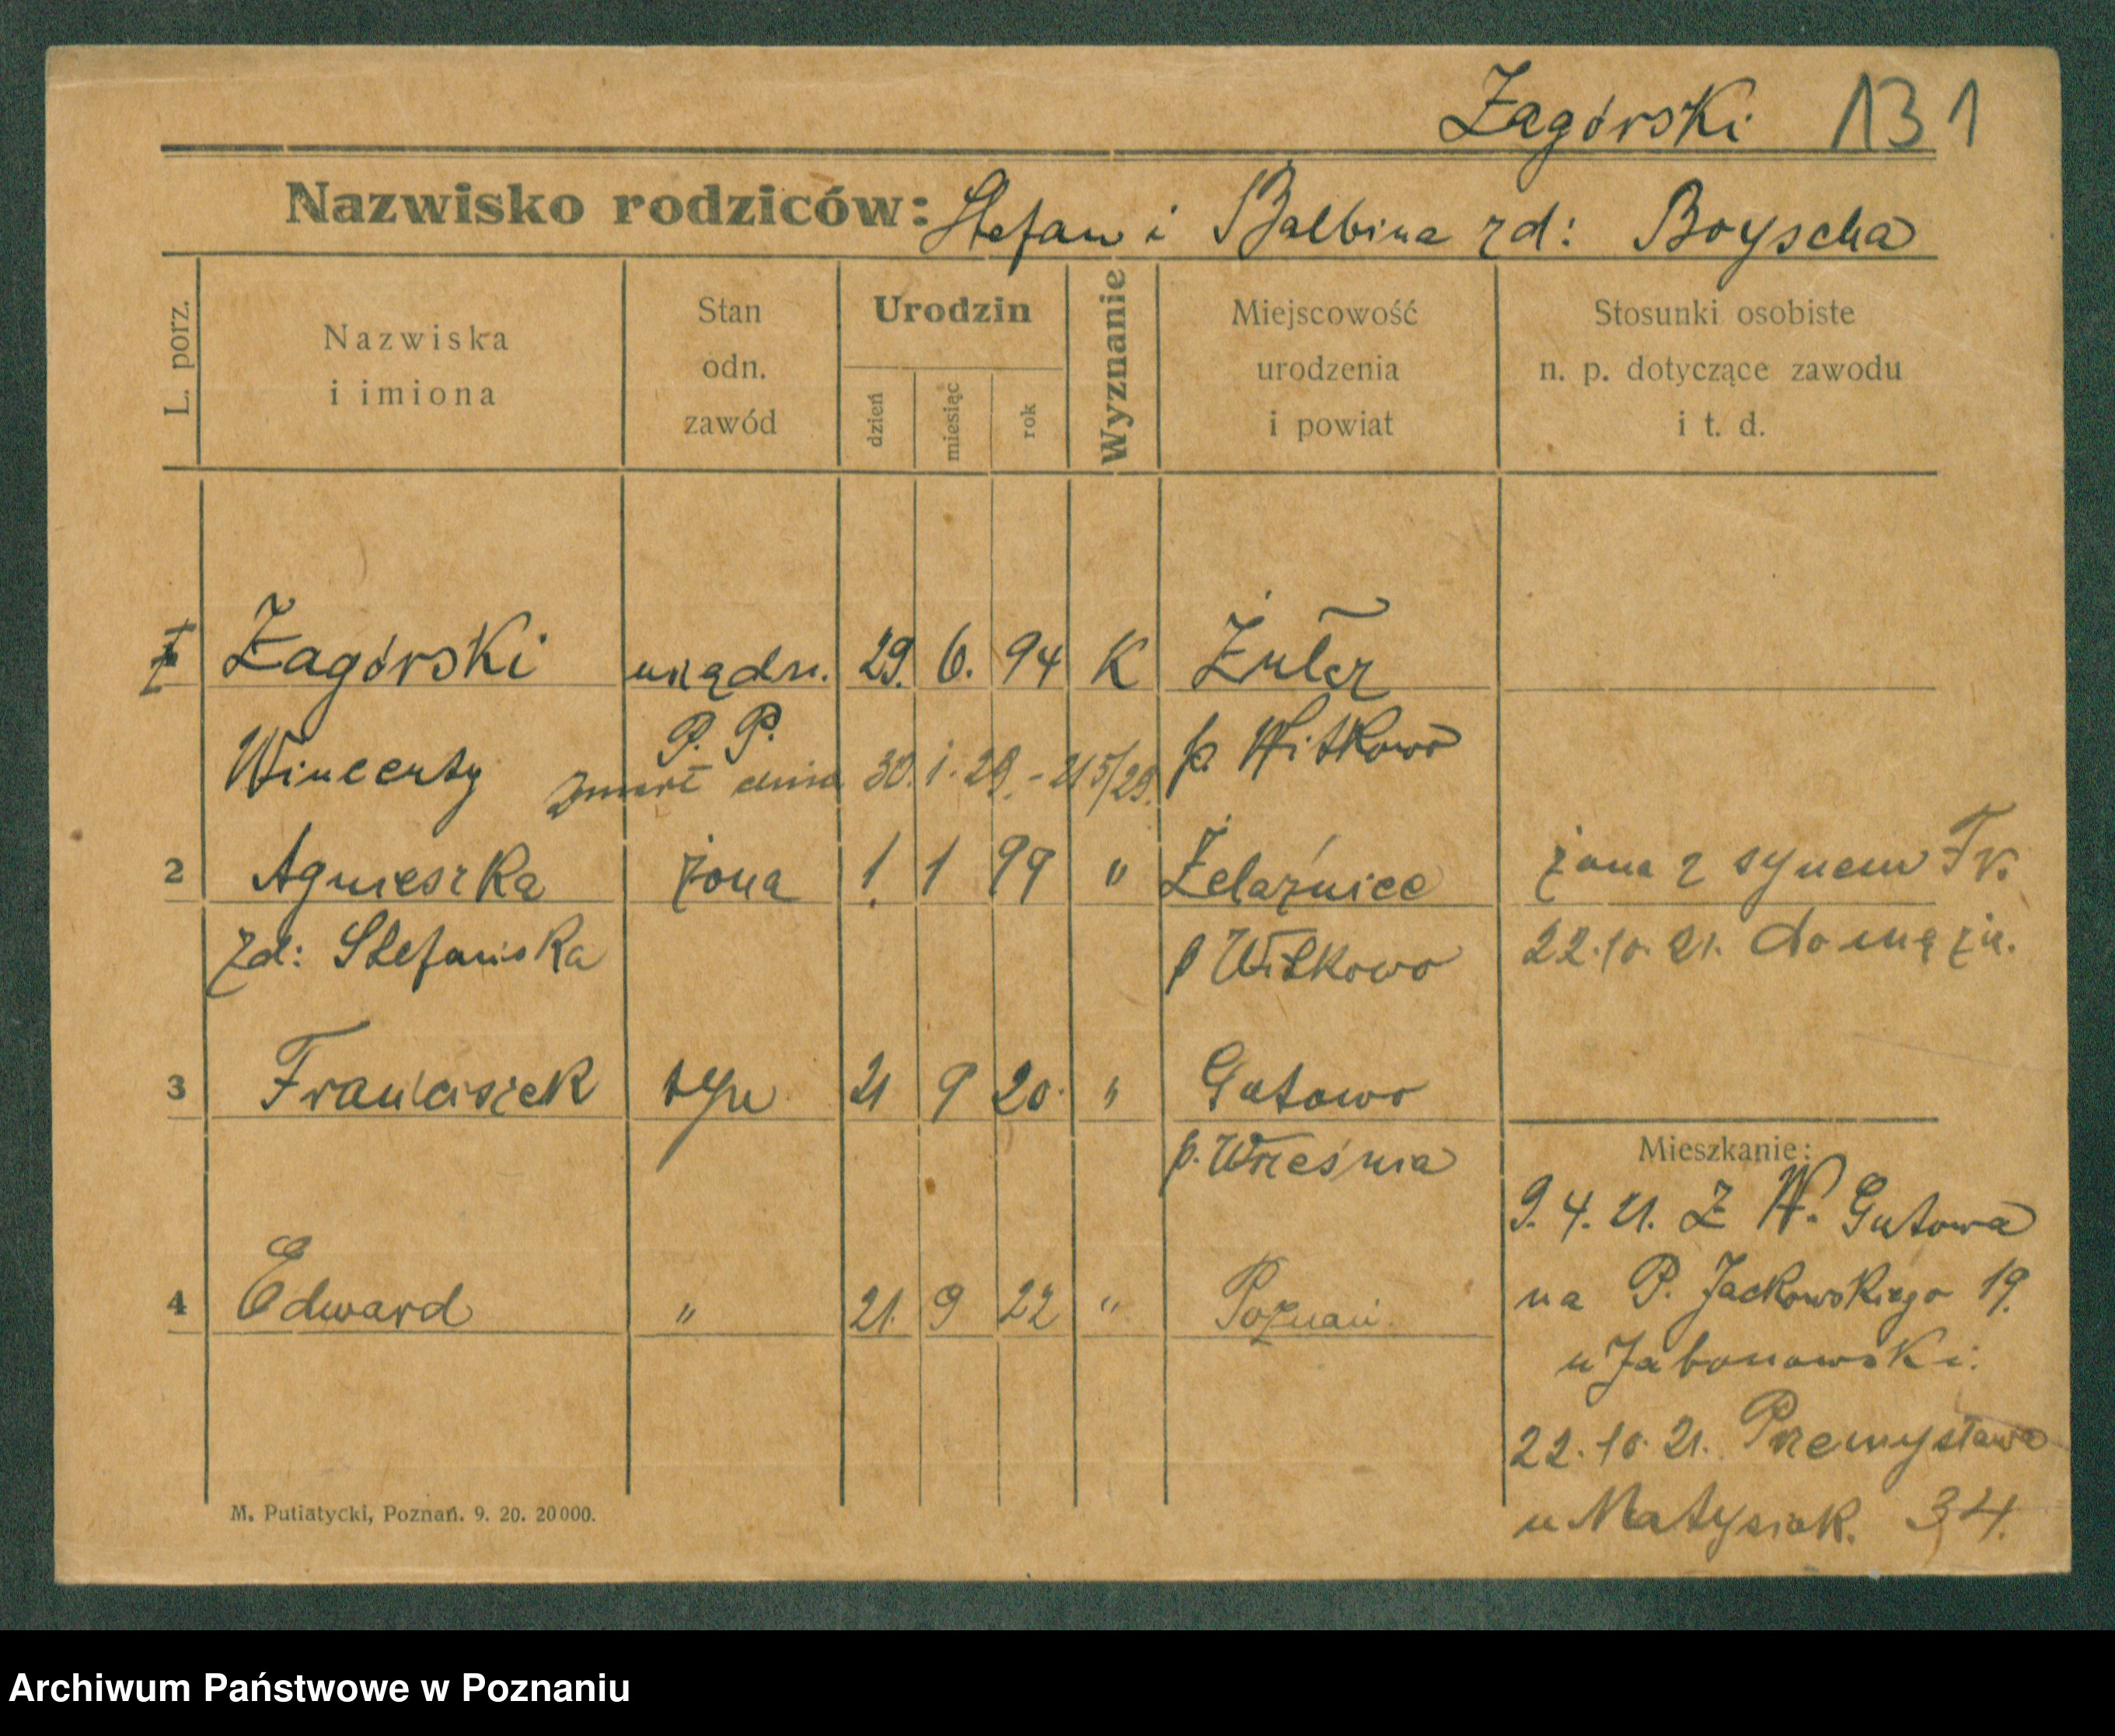 Zagórski 131
Nazwisko rodziców: Stefan i Balbina zd: Boyscha
L. porz.
Nazwiska
i imiona
Stan
odn.
zawód
Urodzin
dzień
miesiąc
rok
Wyznanie
Miejscowość
urodzenia
i powiat
Stosunki osobiste
n. p. dotyczące zawodu
i t. d.
Zagórski urzędn. 29. 6. 94 K
Wincenty P. P. p. Witkowo
zmarł dnia 30. 1. 29. - 215/29.
2 Agnieszka żona 1. 1 99 " Żelaźnice żona z synem Fr.
zd: Stefańska p Witkowo 22.10.21. do męża.
3 Franciszek syn 21 9 20. " Gutowo
p. Września
Mieszkanie:
9.4.21. Z W. Gutowa
na P. Jackowskiego 19.
4 Edward " 21. 9 22 " Poznań.
u Jabonowski.
22.10.21. Przemysława
u Matysiak. 34.
M. Putiatycki, Poznań. 9. 20. 20000.
Archiwum Państwowe w Poznaniu